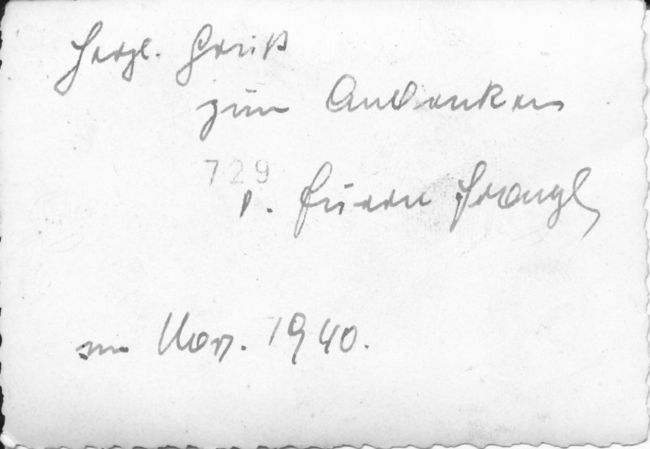 Herzl. Gruß
zum Andenken
729
v. Eurem
im Nov. 1940.